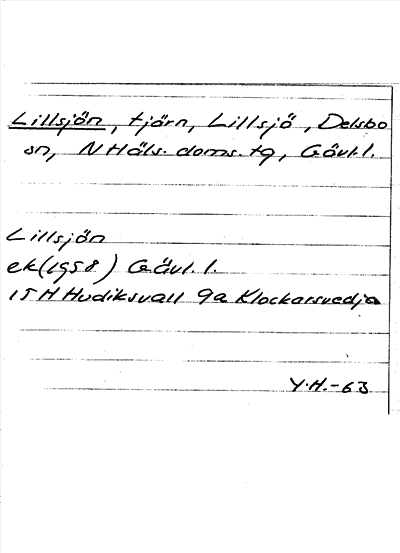 Lillsjön, tjärn, Lillsjö, Delsbo
sn, N Häls. doms. tg, Gävl. l.
Lillsjön
ek (1958) Gävl. l.
15H Hudiksvall 9a Klockarsvedja
Y.H.-63